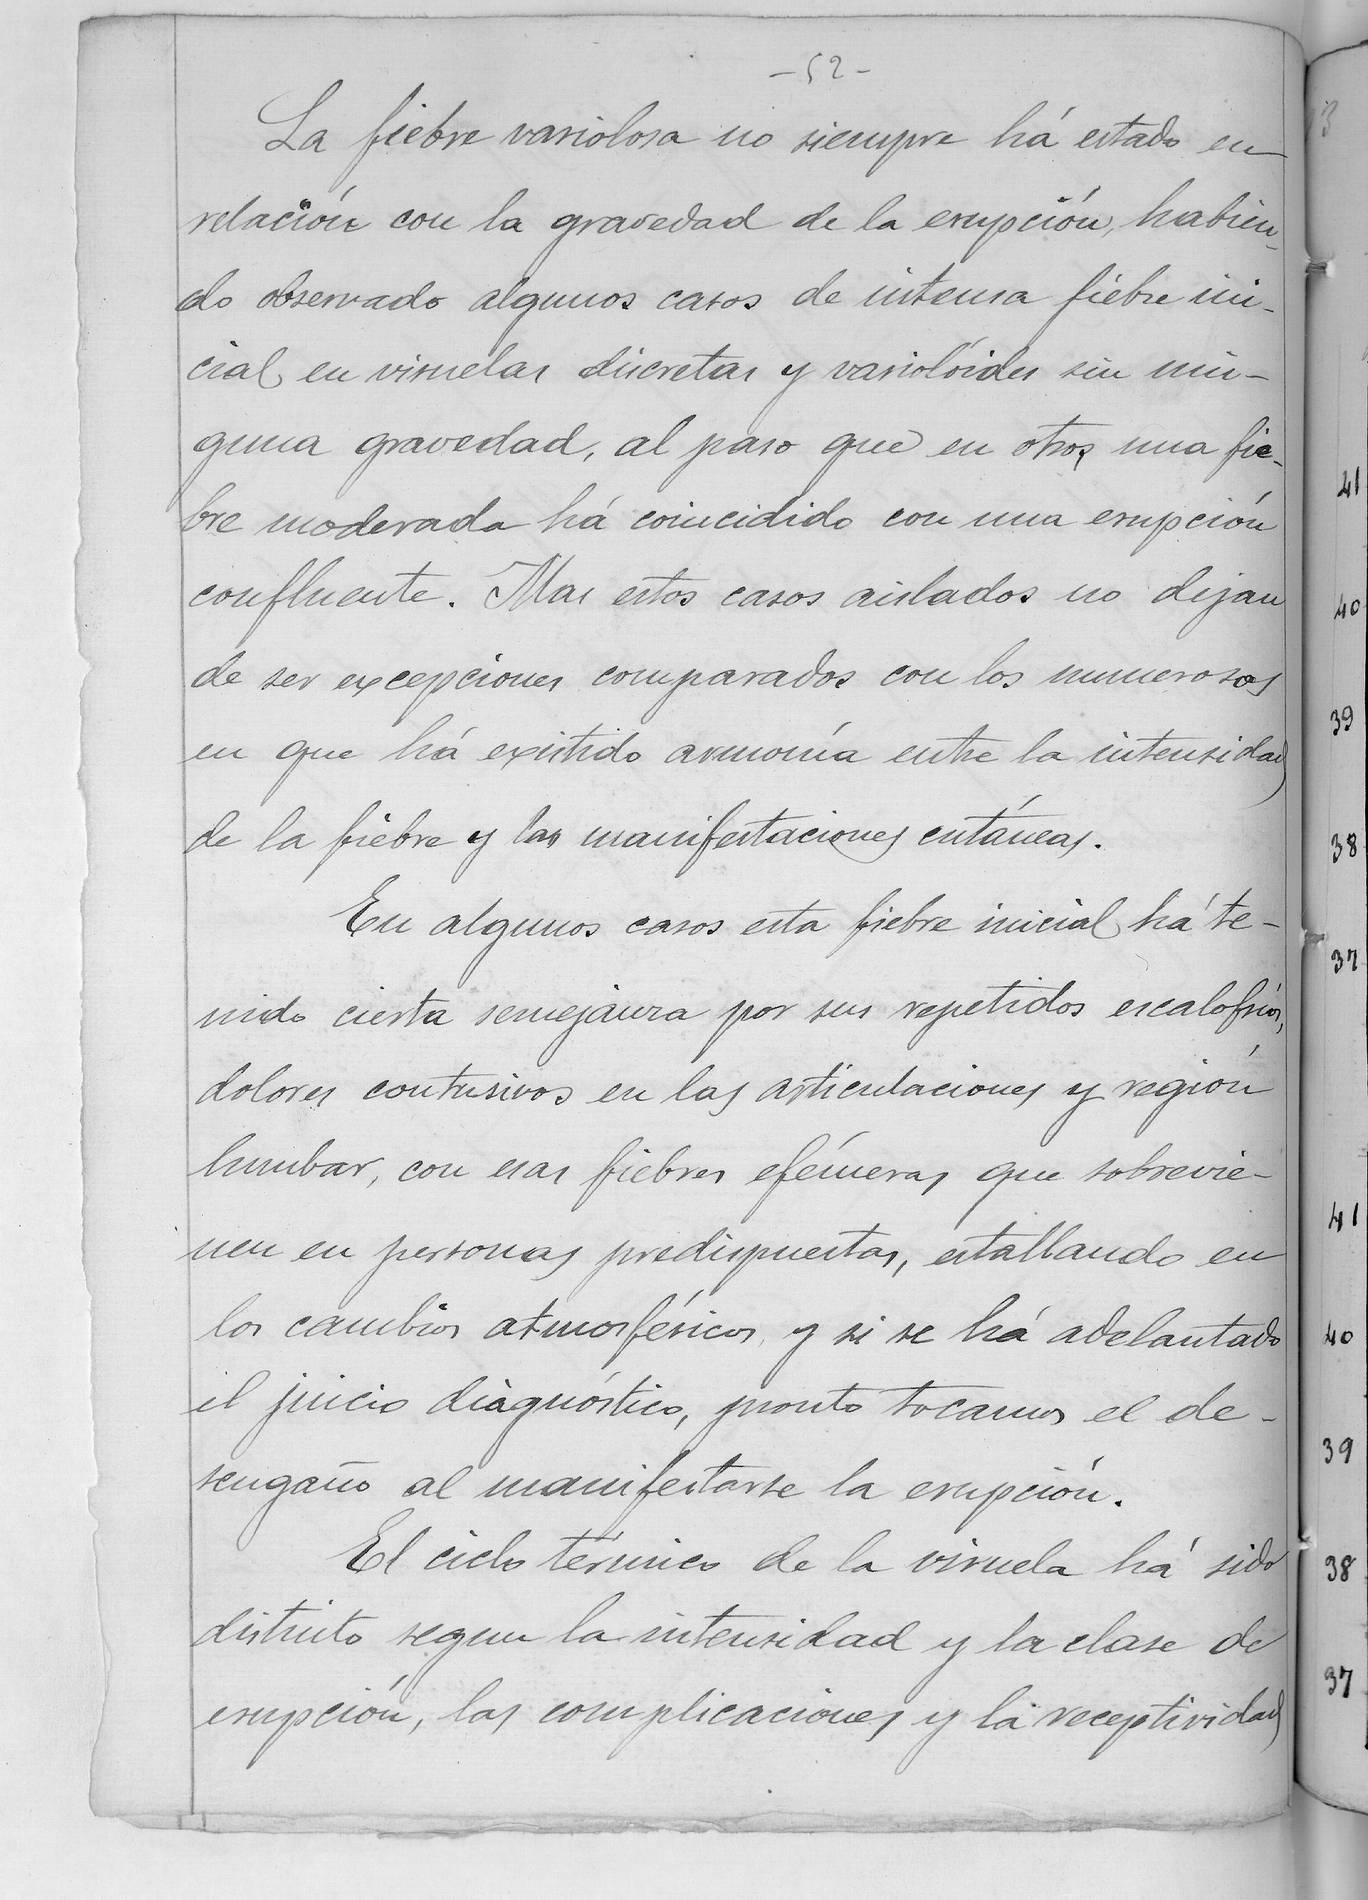 -52-
La fiebre variolosa no siempre há estado en
relación con la gravedad de la erupción, habien-
do observado algunos casos de intensa fiebre ini-
cial en viruelas discretas y variolóides sin nin-
guna gravedad, al paso que en otros una fie-
bre moderada há coincidido con una erupción
confluente. Mas estos casos aislados no dejan
de ser excepciones comparados con los numerosos
en que há existido armonía entre la intensidad
de la fiebre y las manifestaciones cutáneas.
En algunos casos esta fiebre inicial há te-
nido cierta semejanza por sus repetidos escalofríos,
dolores contusivos en las articulaciones y región
lumbar, con esas fiebres efémeras que sobrevie-
nen en personas predispuestas, estallando en
los cambios atmosféricos, y si se há adelantado
el juicio diagnóstico, pronto tocamos el de-
sengaño al manifestarse la erupción.
El ciclo térmico de la viruela há sido
distinto segun la intensidad y la clase de
erupción, las complicaciones y la receptividad
41
40
39
38
37
41
40
39
38
37